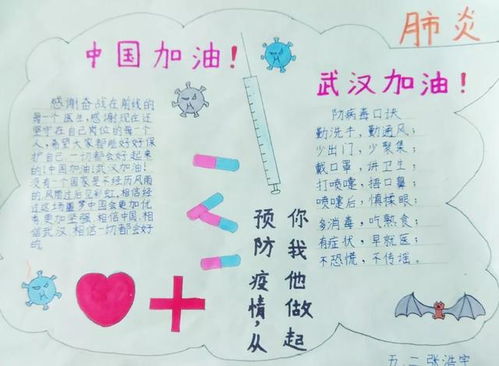 肺炎
中国加油！
武汉加油！
感谢奋战在前线的
每一个医生,感谢现在还
坚守在自己岗位的每一个
人,希望大家都能好好保
护自己.一切都会好起来
的!中国加油!武汉加油!
没有一个国家是不经历风雨
的风雨过后见彩虹,相信经
过这场噩梦中国会更加优
秀更加坚强 相信中国,相
信武汉 相信一切都会好
的.
防病毒口诀
勤洗手，勤通风；
少出门，少聚集；
戴口罩，讲卫生；
打喷嚏，捂口鼻；
喷嚏后，慎揉眼；
多消毒，吃熟食；
有症状，早就医；
不恐慌，不传谣。
预防疫情，从
你我他做起
五.二 张浩宇